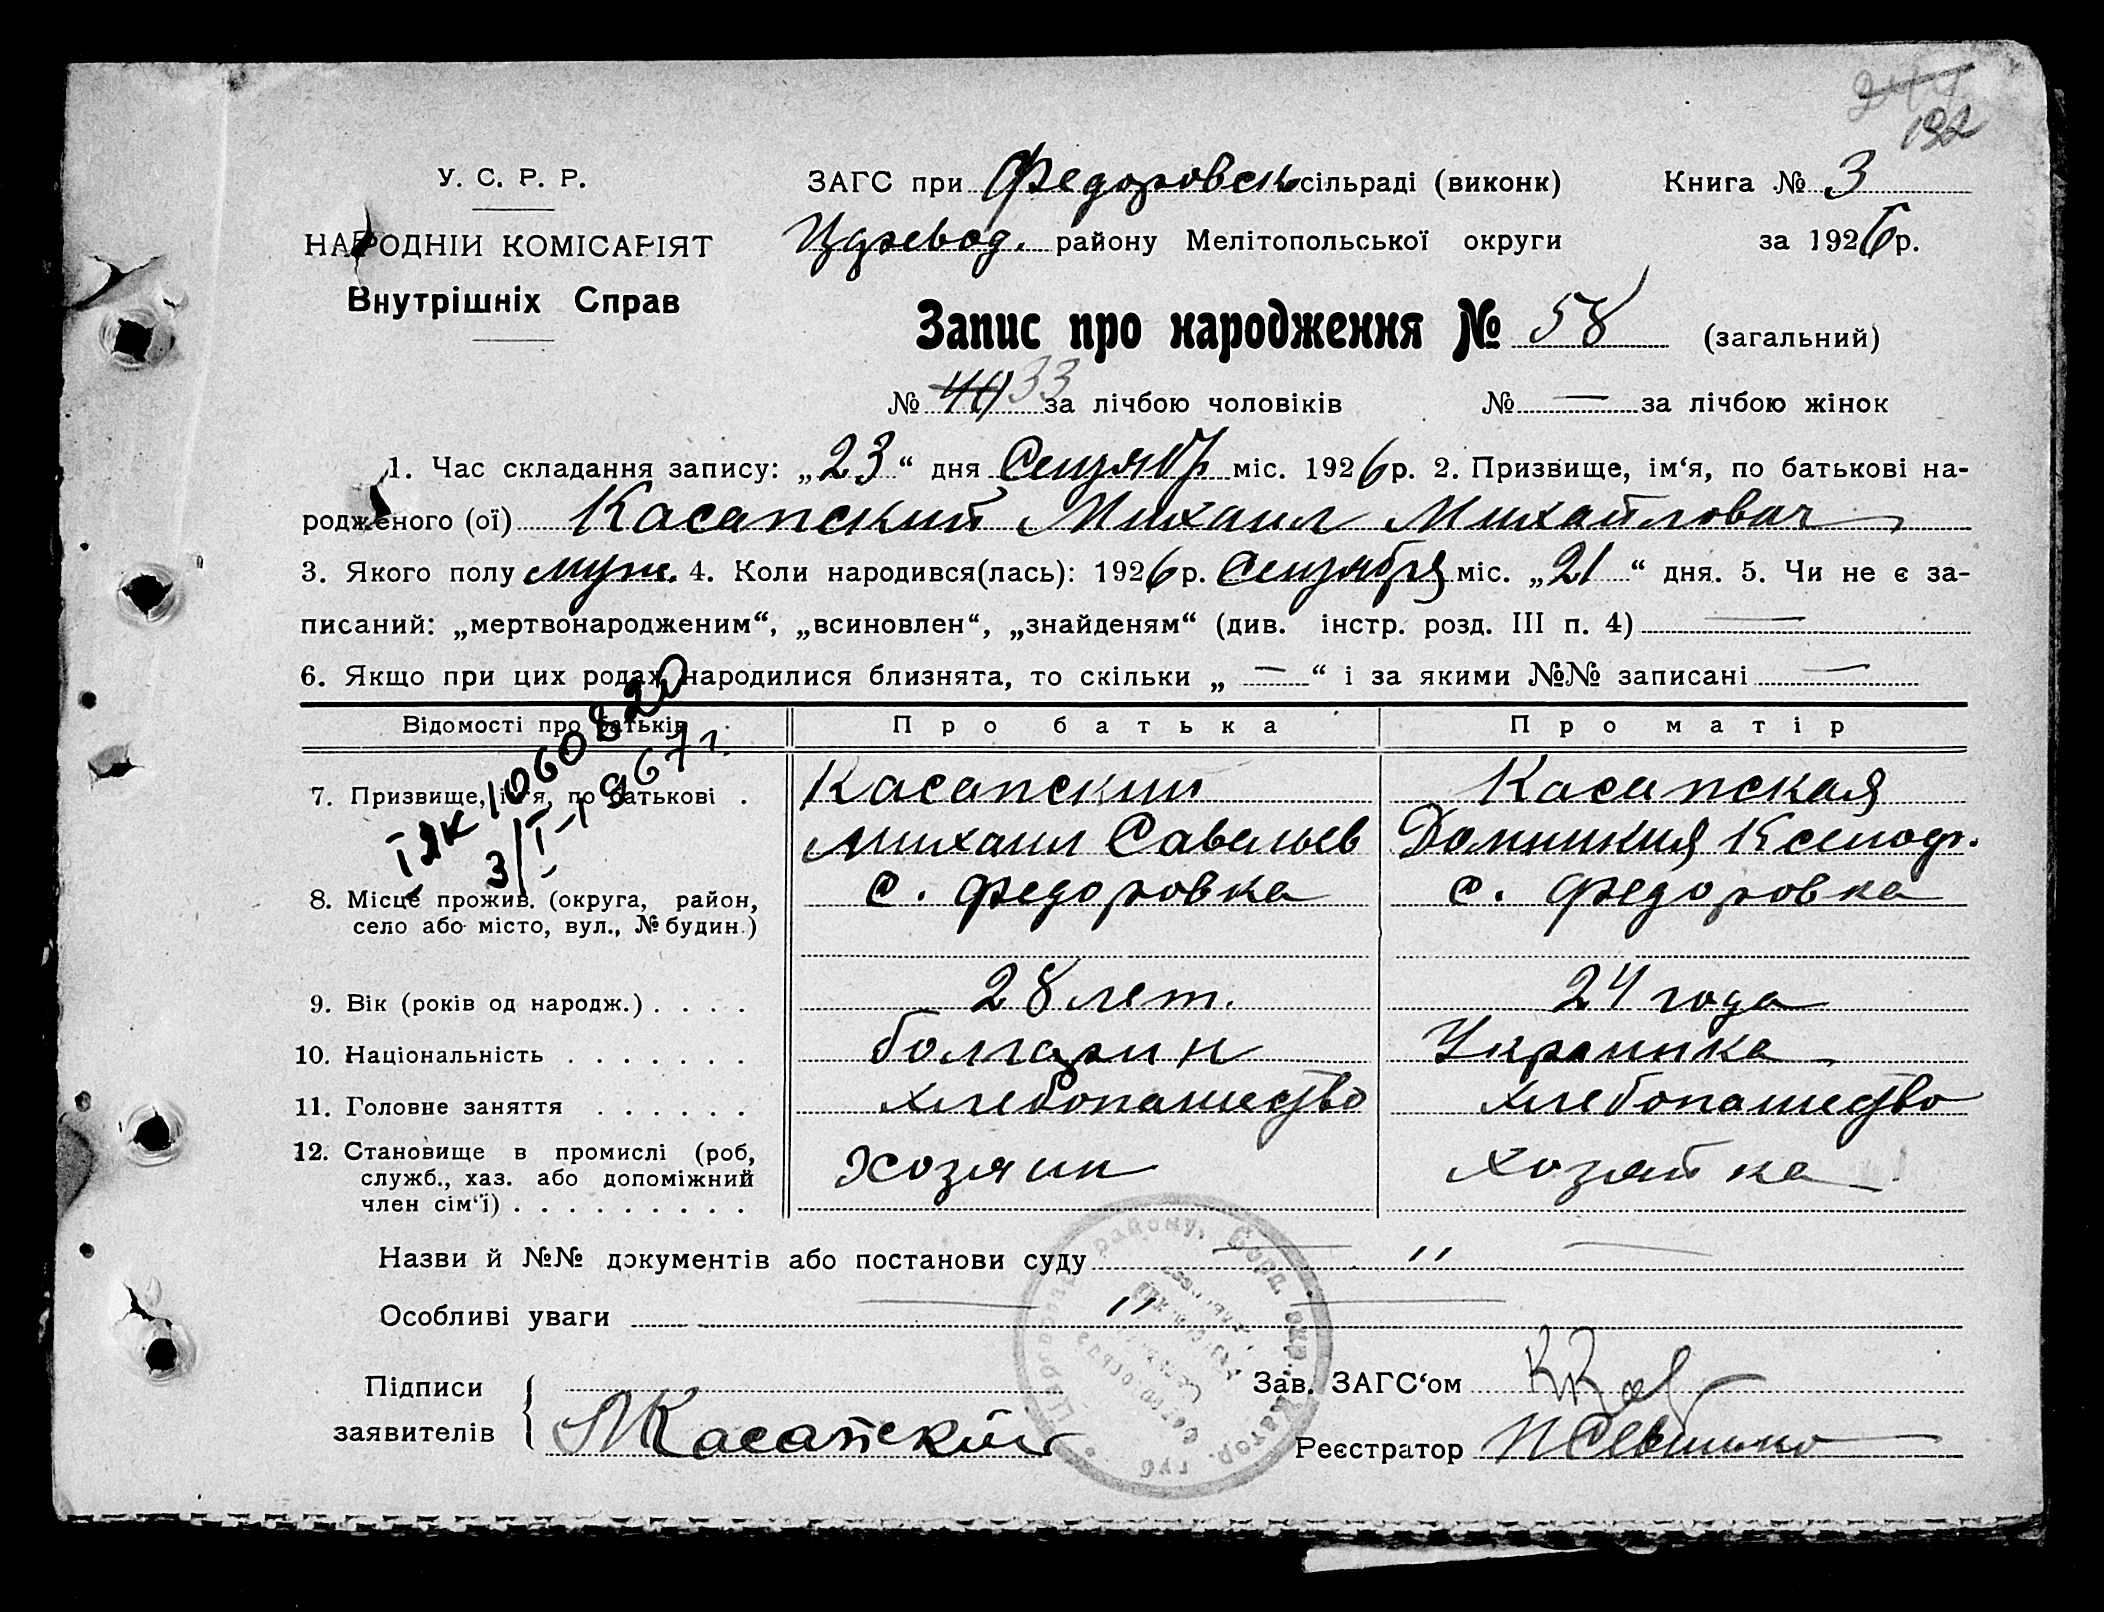 192
У. С. Р. Р.
ЗАГС при Федоровск сільраді (виконк) Книга № 3
НАРОДНІЙ КОМІСАРІЯТ
району Мелітопольської округи за 1926 р.
Внутрішніх Справ
Запис про народження № 58 (загальний)
№ 33 за лічбою чоловіків № — за лічбою жінок
1. Час складання запису: „23“ дня Сентябр міс. 1926 р. 2. Призвище, ім‘я, по батькові на-
родженого (ої) Касапский Михаил Михайлович
3. Якого полу муж. 4. Коли народився(лась): 1926 р. Сентября міс. „21“ дня. 5. Чи не є за-
писаний: „мертвонародженим“, „всиновлен“, „знайденям“ (див. інстр. розд. III п. 4) —
6. Якщо при цих родах народилися близнята, то скільки „ — “ і за якими №№ записані —
Відомості про батьків Про батька Про матір
7. Призвище, ім‘я, по батькові . Касапский Касапская
Михаил Савельев Домникия Ксеноф.
8. Місце прожив. (округа, район, с. Федоровка с. Федоровка
село або місто, вул., № будин.)
9. Вік (років од народж.) . . . . 28 лет. 24 года
10. Національність . . . . . . . болгарин Украинка
11. Головне заняття . . . . . . хлебопашество хлебопашество
12. Становище в промислі (роб, Хозяин Хозяйка
служб., хаз. або допоміжний
член сім‘ї) . . . . . . . . .
ІЯК 1060820
3/I-1967 г.
Назви й №№ документів або постанови суду — " —
Особливі уваги — " —
Підписи
заявителів МКасапский
Зав. ЗАГС‘ом
Реєстратор